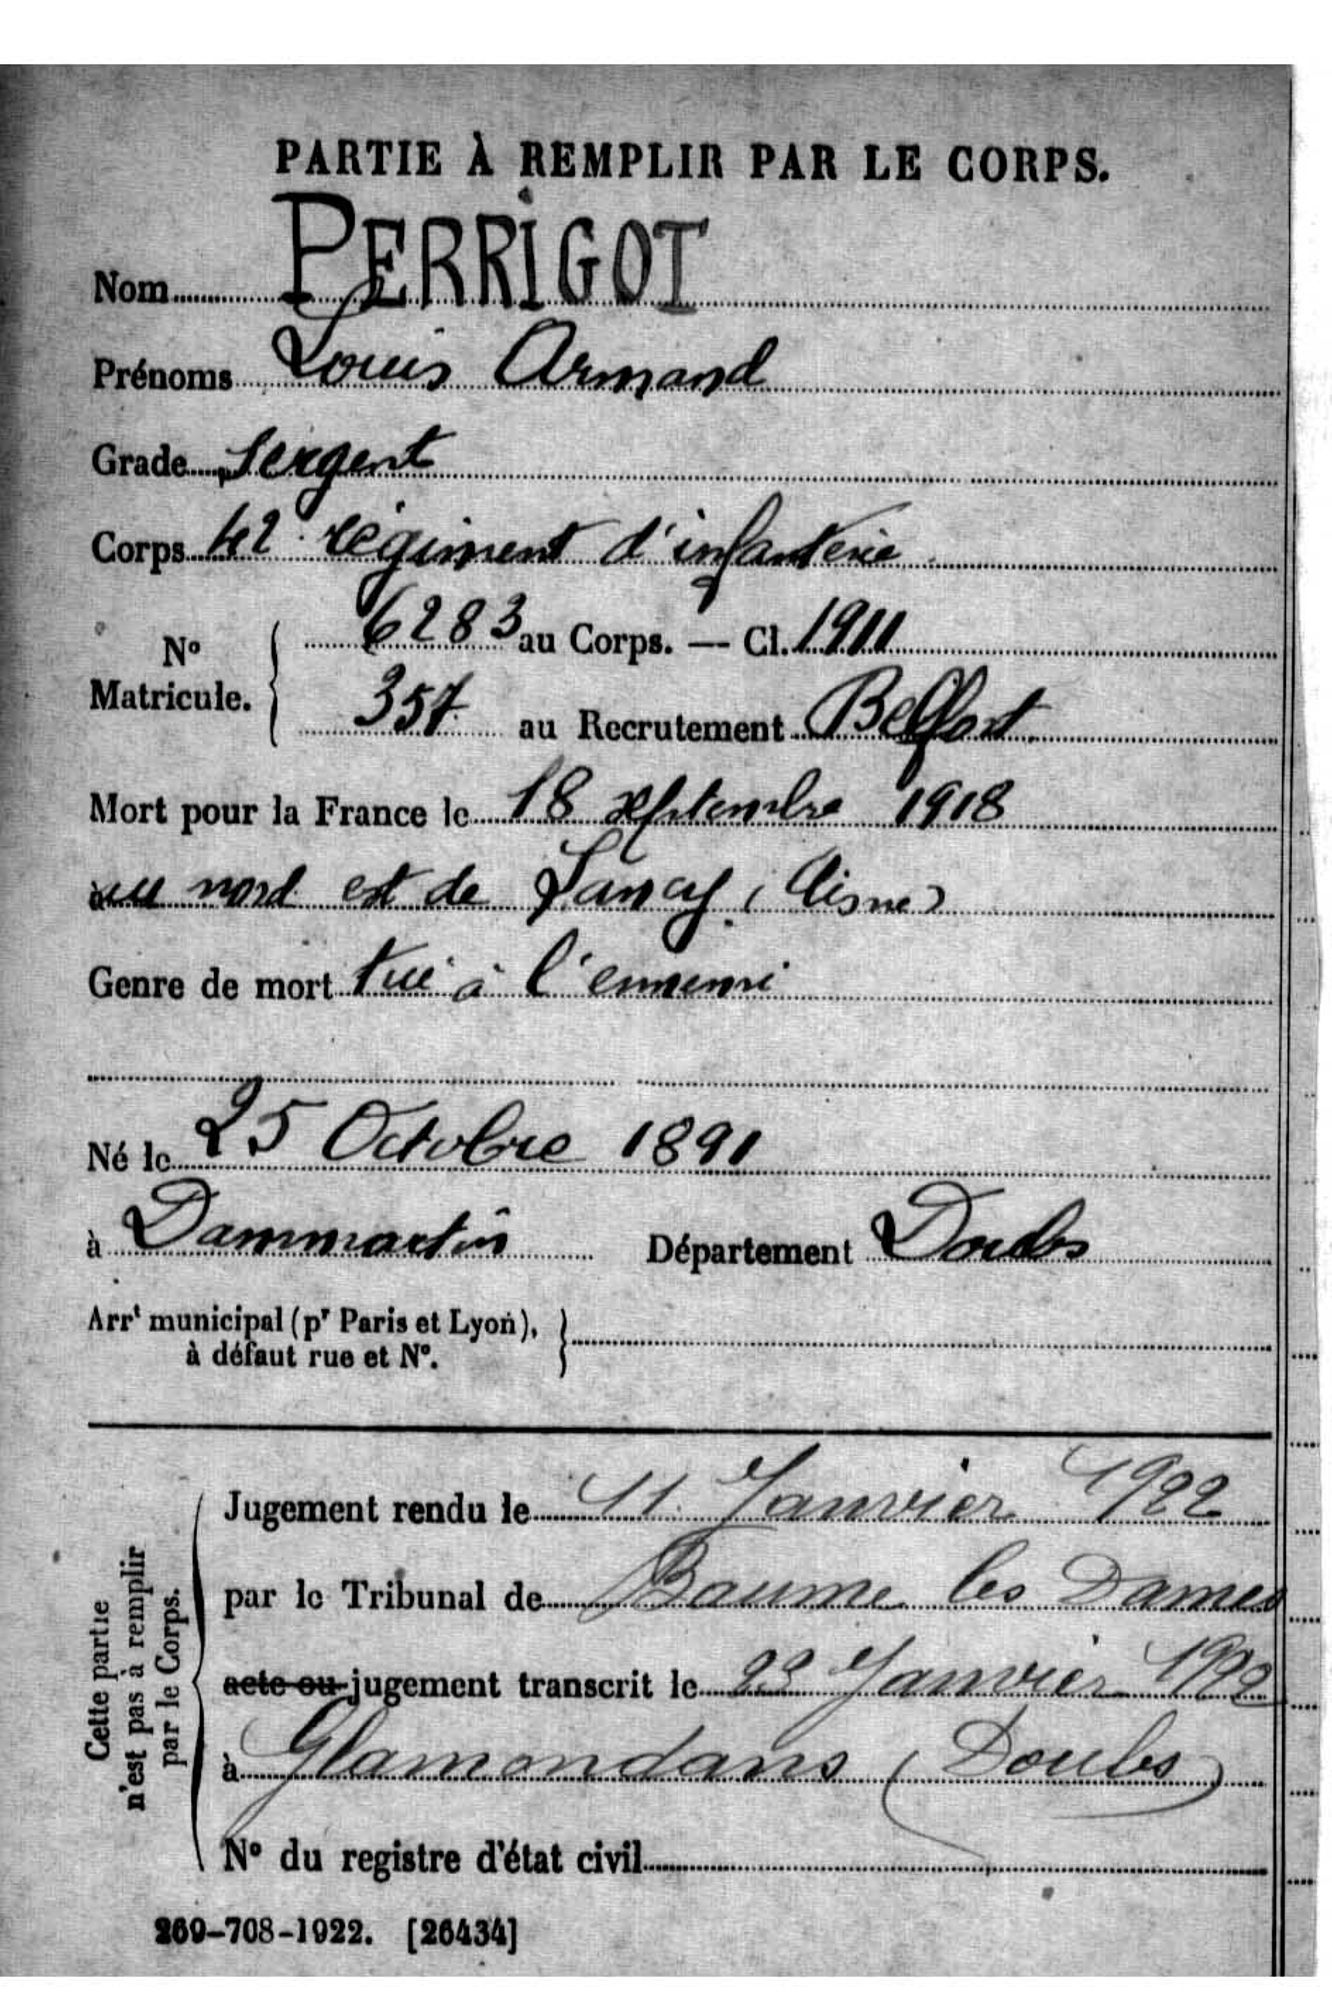 PARTIE À REMPLIR PAR LE CORPS.
Nom PERRIGOT
Prénoms Louis Armand
Grade Sergent
Corps 42e régiment d'infanterie
N° Matricule. { 6283 au Corps. — Cl. 1911
357 au Recrutement Belfort
Mort pour la France le 18 septembre 1918
au nord est de (Aisne)
Genre de mort tué à l'ennemi
Né le 25 Octobre 1891
à Dammartin Département Doubs
Arrt municipal (pr Paris et Lyon), }
à défaut rue et N°.
Cette partie
n'est pas à remplir
par le Corps.
Jugement rendu le 11 Janvier 1922
par le Tribunal de Baume les Dames
acte ou jugement transcrit le 23 Janvier 1922
à Glamondans (Doubs)
N° du registre d'état civil
269-708-1922. [26434]